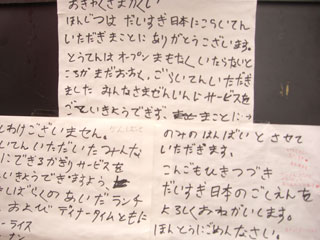 おきゃくさまかくい
ほんじつは だいすぎ日本にごらいてん
いただぎまことに ありがとうございます。
とうてんは オープン まもなく いたらないと
ころが まだおおく、ごらいてんいただき
ました みんなさまぜんいんじサービスを
ていきようできず、まことに→
わけございません。
いただいたみんな
にできるかぎりサービスを
いきようできますよう、
しばらくのあいだランチ
および ディナータイムともに
ーライス
ナン
のみのはんばいと させて
いただぎます。
こんごもひきつづき
だいすぎ日本のごしえんを
よろしくおねがいします。
ほんとうにごめんなさい。